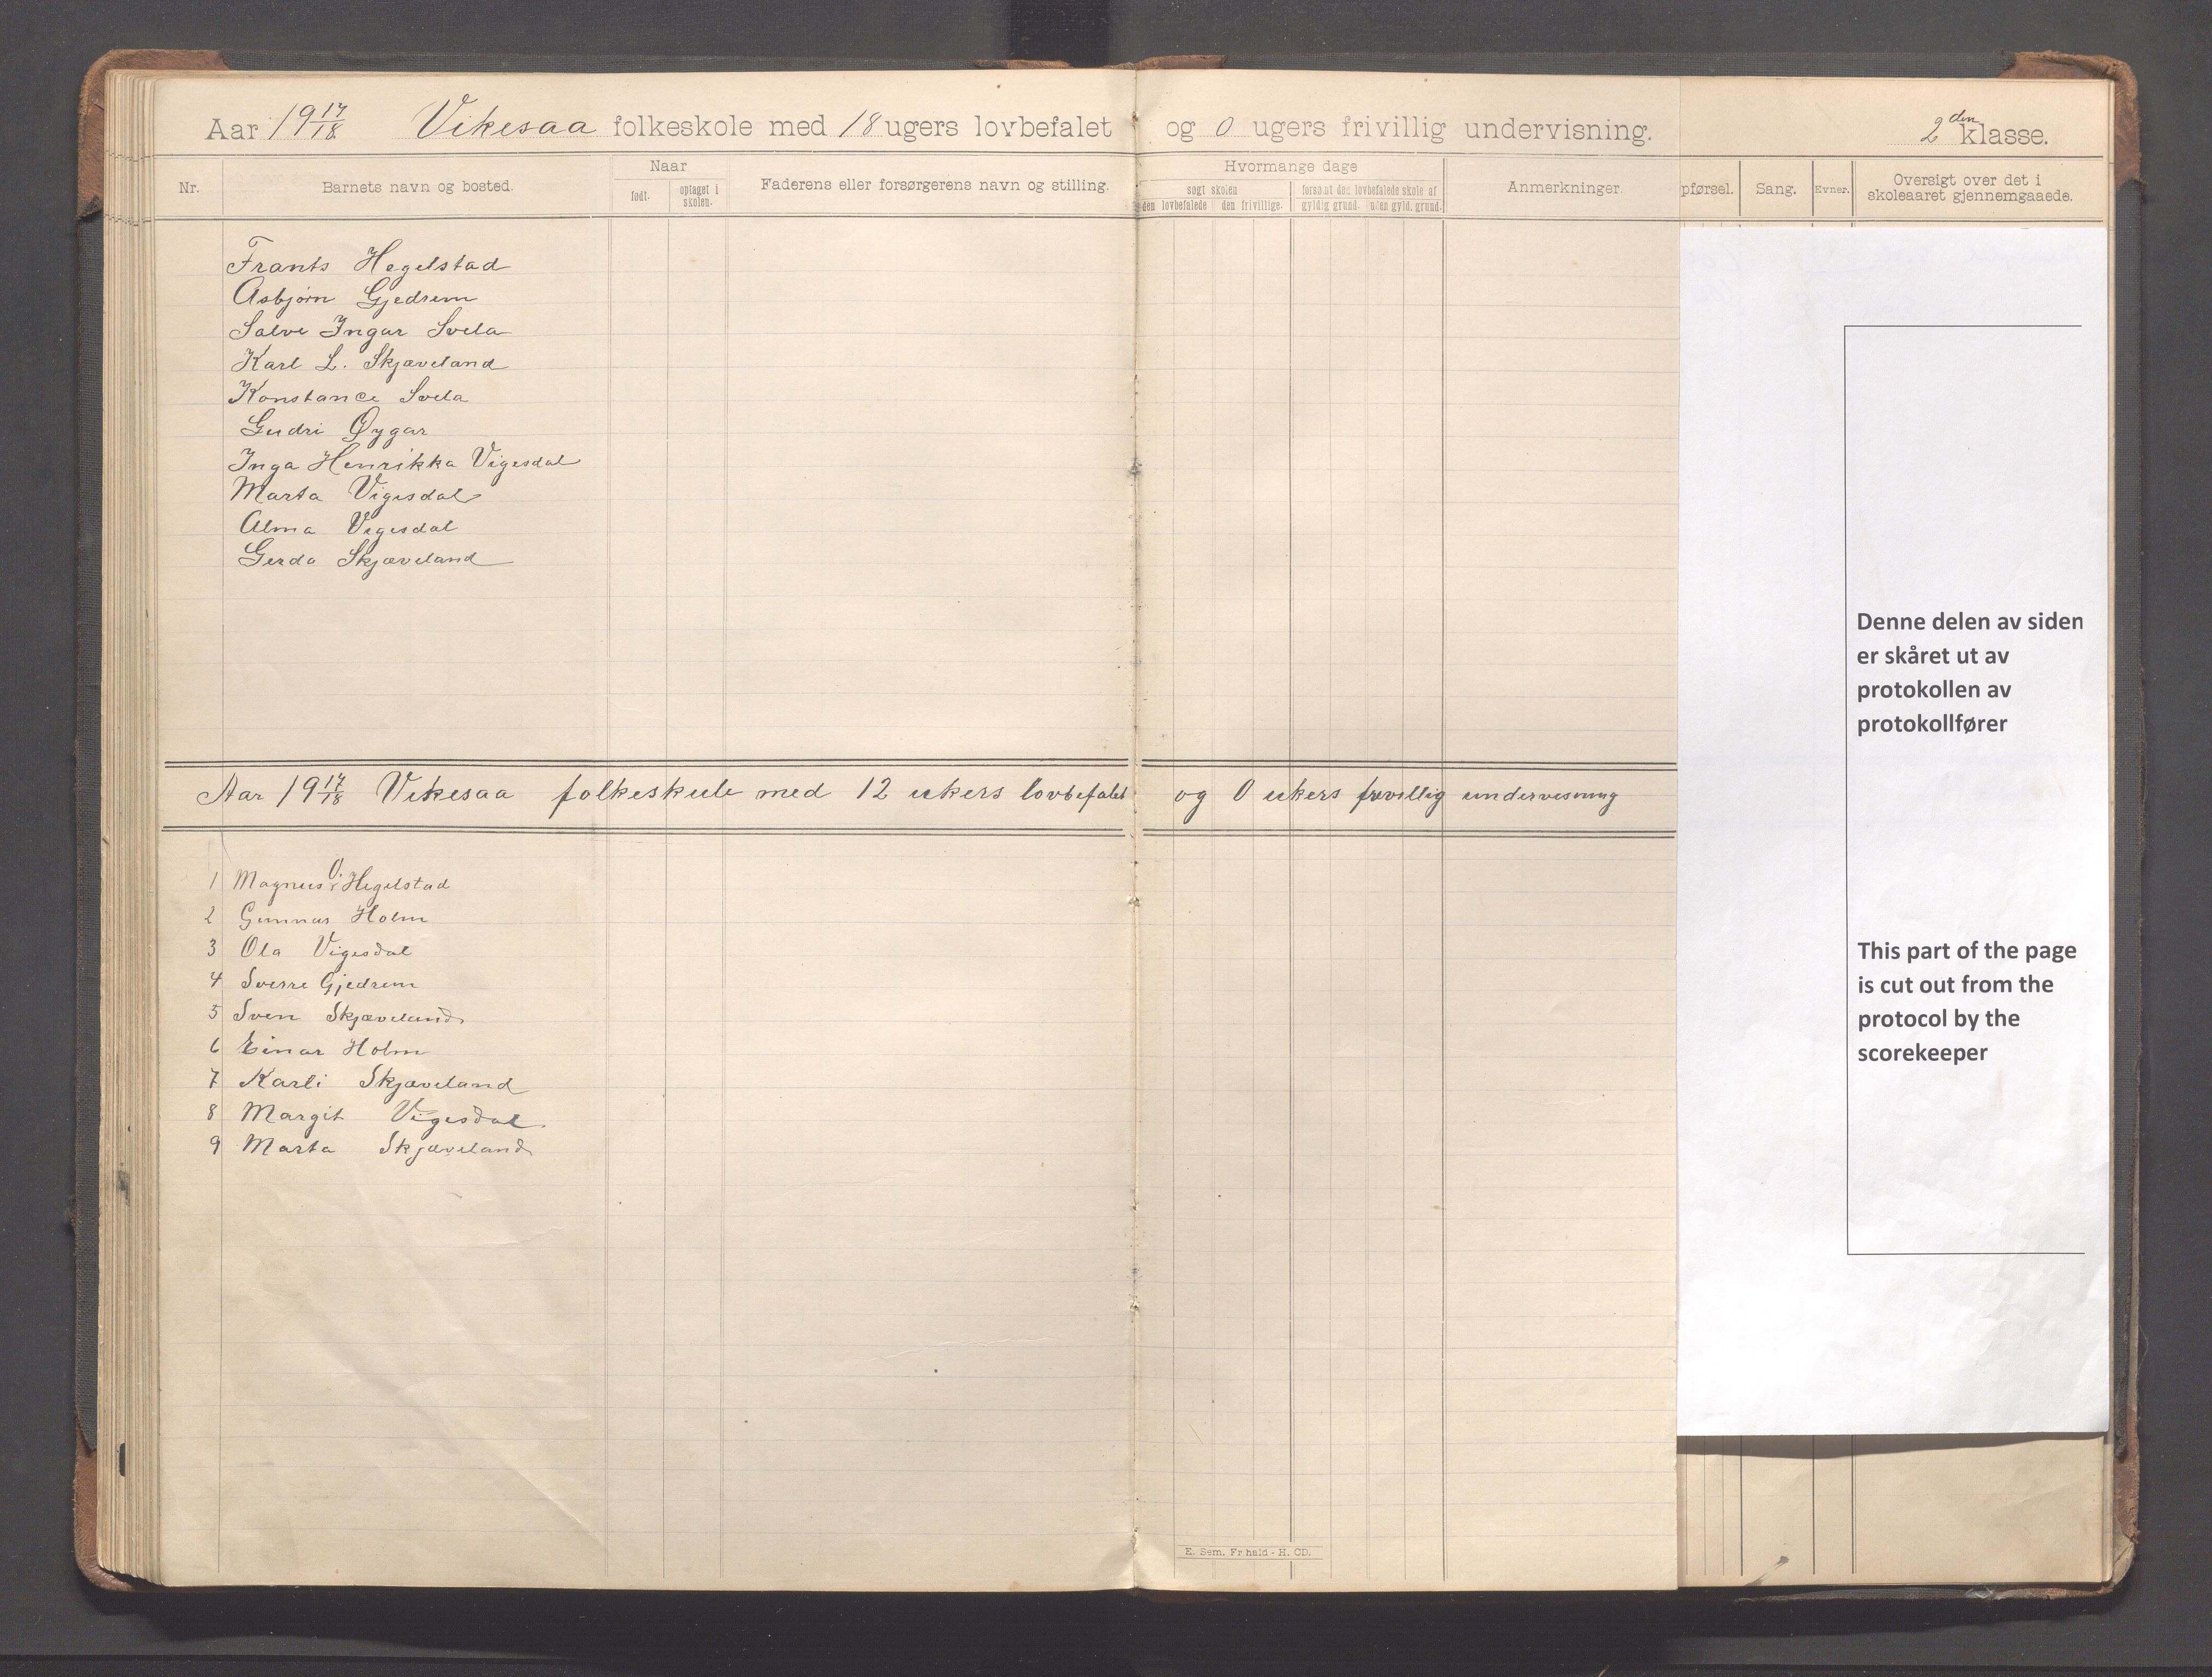 Aar 19 17/18 Vikesaa folkeskole med 18 ugers lovbefalet og 0 ugers frivillig undervisning. 2den klasse.
Nr.
Barnets navn og bosted.
Naar
født.
optaget i skolen.
Faderens eller forsørgerens navn og stilling.
Hvormange dage
søgt skolen
den lovbefalede
den frivillige.
forsømt den lovbefalede skole af
gyldig grund.
uden gyld. grund.
Anmerkninger.
pførsel.
Sang.
Evner.
Oversigt over det i
skoleaaret gjennemgaaede.
Frants Hegelstad
Asbjørn Gjedrem
Salve Ingar Svela
Karl L. Skjæveland
Konstance Svela
Gudri Øygar
Inga Henrikka Vigesdal
Marta Vigesdal
Alma Vigesdal
Gerda Skjæveland
Aar 19 17/18 Vikesaa folkeskule med 12 ukers lovbefalet og 0 ukers frivillig undervisning
1 Magnus O. Hegelstad
2 Gunnar Holm
3 Ola Vigesdal
4 Sverre Gjedrem
5 Sven Skjæveland
6 Einar Holm
7 Karli Skjæveland
8 Margit Vigesdal
9 Marta Skjæveland
E. Sem. Fr.hald - H. CD.
Denne delen av siden
er skåret ut av
protokollen av
protokollfører
This part of the page
is cut out from the
protocol by the
scorekeeper